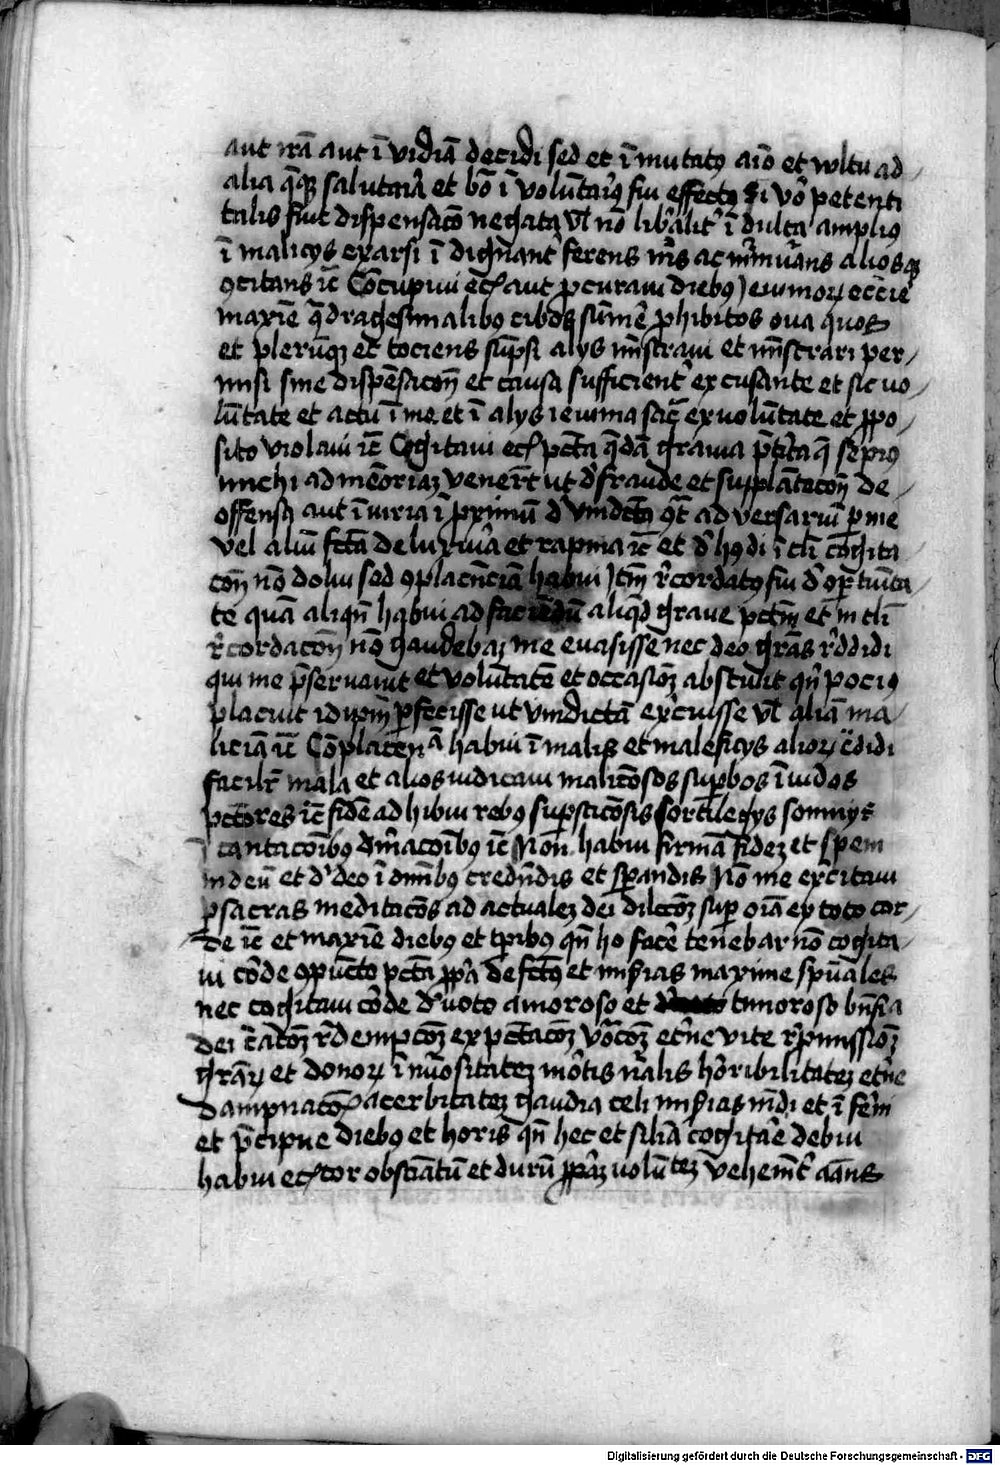 aut irā aut ī vidiā decidi sed et ī mutatꝰ aīo et wltu ad
alia q̄qꝫ salutaria et bō ī volūtariꝰ fui effectꝰ Si vo petenti
talis fiuit dispensacō negata vl nō libalit ī dulta ampliꝰ
ī malicijs exarsi ī dignant ferens ac alios
ītm Cōcupiui ecī aut pcuraui diebꝰ Jeiunioꝝ eccie
maxīe qdragesimalibꝰ cibos sumē phibitos oua
et plerūqꝫ et tociens sūpsi alijs mīstraui et mīstrari per
misi sine dispēsacōn et causa sufficient excusante et sic vo
lūtate et actu ī me et ī alijs ieiunia sac ex volūtate et ppo
sito violaui ītm Cogitaui ecī pctā qdā grauia q sepiꝰ
michi ad mēoriaꝫ venert ut d fraude et supplātacōn de
offensa aut ī iuria ī pximū d vindcta ad versariū p me
vel aliū fctā de luxuria et rapina ītm et d ī tli cogita
cōn nō dolui sed ꝯplacēciā habui Jtm rcordatꝰ fui d optuita
te quā aliqn habui ad faciēdū aliqd graue pctm et in tli
rcordacōn nō gaudebaꝫ me euasisse nec deo grās rddidi
qui me pseruauit et volūtatē et occasiōꝫ abstulit qn pociꝰ
placuit id ipm pfecisse ut vindictā excuisse vl aliā ma
liciā ītm Cōplacenā habui ī malis et maleficijs alioꝝ cdidi
facilit mala et alios iudicaui maliciosos supbos īuidos
pctōres ītm fidē ad hibui rebꝰ supsticiosis sortilegijs sompnijs
ī cantacōibꝰ diuīacōibꝰ ītm Non habui firmā fideꝫ et spem
in deū et d deo ī omībꝰ credndis et spandis Nō me excitaui
p sacras meditacōs ad actualeꝫ dei dilccōꝫ sup oīa ex toto cor
de ītm et maxīe diebꝰ et tpibꝰ qn ho facē tenebar nō cogita
ui corde ꝯpūcto pctā ppa defctꝰ et misias maxime spuales
nec cogitaui corde duoto amoroso et timoroso bnficia
dei cacōꝫ rdempcōꝫ expctacōꝫ vocōꝫ etne vite rpmissiōꝫ
graꝝ et donoꝝ ī mūositateꝫ mortis nalis horibilitateꝫ etne
dampnacōis acerbitateꝫ gaudia celi misias mdi et ī fēni
et pcipue diebꝰ et horis qn hec et silia cogitare debui
habui ecī cor obstiātū et durū volūteꝫ vehemt aans
Digitalisierung gefördert durch die Deutsche Forschungsgemeinschaft - DFG